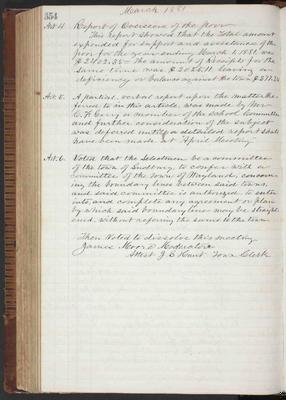 354
March 1881
Art 4. Report of Overseers of the poor.
This report showed that the total amount
expended for support and assistance of the
poor for the year ending March 1, 1881 was
$2402.35 — the amount of receipts for the
same time was $2025.11 leaving an
deficiency or balance against the town $377.24
Art 5. A partial, verbal report upon the matter re-
ferred to in this article, was made by Mr
C. F. Gerry a member of the School Committee
and further consideration of the subject
was deferred until a detailed report shall
have been made at April Meeting
Art 6. Voted that the Selectmen be a committee
of the town of Sudbury to confer with a
committee of the town of Wayland, concern-
ing the boundary lines between said towns,
and said committee is authorized to enter
into and complete any agreement or plan
by which said boundary lines may be straight-
ened, without referring the same to the town
Then Voted to dissolve this meeting
James Moore Moderator
Attest J. S. Hunt Town Clerk